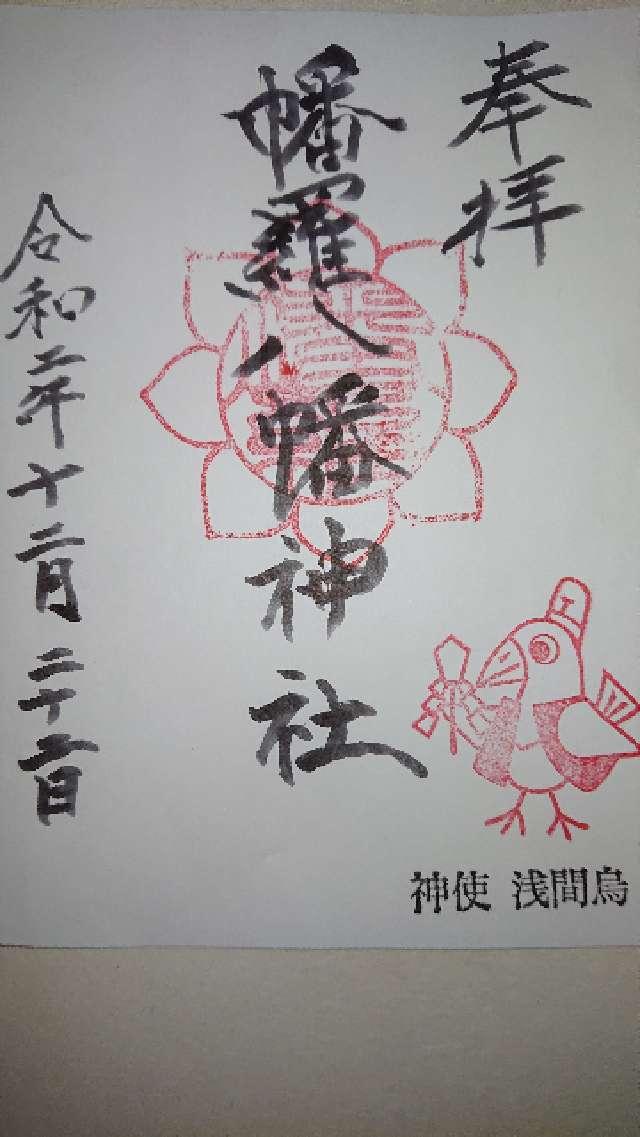 奉拝
幡羅八幡神社
令和二年十二月二十二日
神使 浅間烏